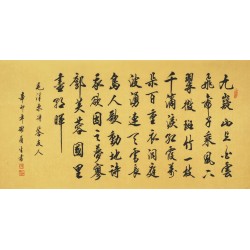 九嶷山上白雲
飛帝子乘風下
翠微斑竹一枝
千滴淚紅霞萬
朵百重衣洞庭
波涌連天雪長
島人歌動地詩
我欲因之夢寥
廓芙蓉國里
盡朝暉
毛澤東詩答友人
辛卯年